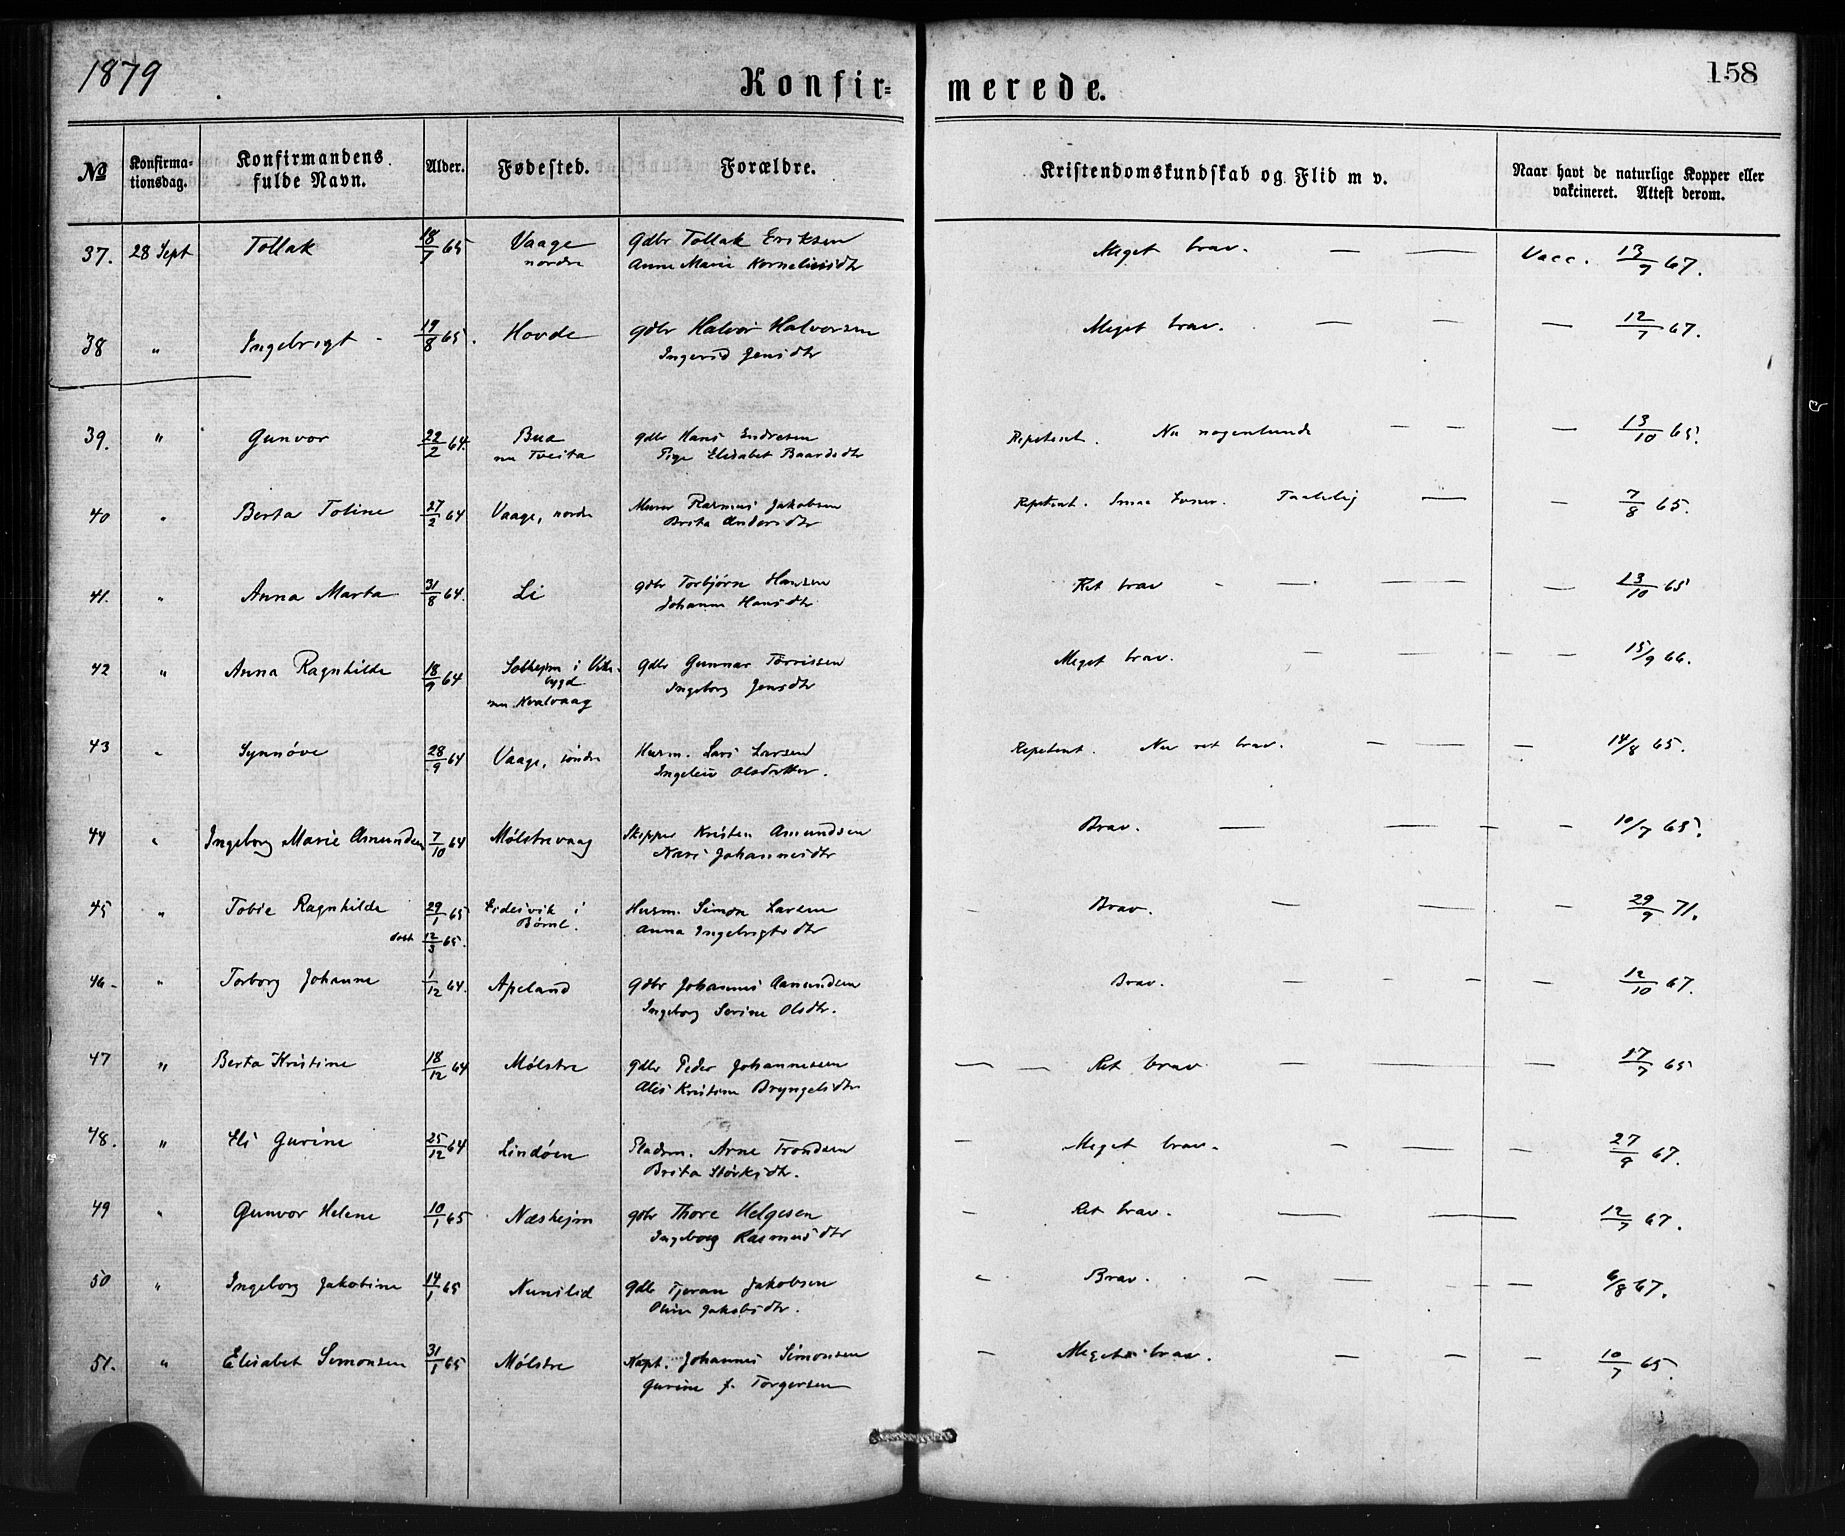 1879
Konfir= merede.
158
No
Konfirma-
tionsdag.
Konfirmandens
fulde Navn.
Alder.
Fødested.
Forældre.
Kristendomskundskab og Flid m v.
Naar havt de naturlige Kopper eller
vakcineret. Attest derom.
37. 28 Sept Tollak 18/7 65 Vaage gdbr Tollak Eriksen Meget brav. — — Vacc. 13/9 67.
nordre Anne Marie Korneliusdtr
38 " Ingebrigt 19/8 65. Hovde gdbr Halvor Halvorsen Meget brav. — — — 12/7 67.
Jensdtr
39. " Gunvor 22/2 64. Bua gdbr Hans Endresen Repetent. Nu nogenlunde — — — 13/10 65.
nu Tveita Pige Elisabet Baardsdtr
40 " Berta Toline 27/2 64 Vaage, nordre Murer Rasmus Jakobsen Repetent. Smaa Evner. Taalelig — — 7/8 65.
Brita Andersdtr
41. " Anna Marta 31/8 64. Li gdbr Torbjørn Hansen Ret brav — — — 13/10 65
Johanne Hansdtr
42 " Anna Ragnhilde 18/9 64 Solhejm i Vike- gdbr Gunnar Torrissen Meget brav. — — — — 15/9 66.
bygd Ingeborg Jensdtr
nu Kvalvaag
43 " Synnøve 28/9 64 Vaage, søndre Husm. Lars Larsen Repetent. Nu ret brav. — — — 14/8 65.
Olsdatter.
44 " Ingeborg Marie Amundsen 7/10 64 Mølstrevaag Skipper Kristen Amundsen Brav. — — — — 10/7 65.
Johannesdtr
45 " Tobie Ragnhilde 29/1 65 Eidesvik i Husm. Simon Larsen Brav. — — — 29/9 71.
døbt 12/3 65. Bøml. Anna Ingebrigtsdtr
46 " Torborg Johanne 1/12 64. Apeland gdbr Johannes Aamundsen Brav. — — — — 12/10 67.
Ingeborg Serine Olsdtr.
47 " Berta Kristine 18/12 64 Mølstre gdbr Peder Johannesen — — Ret brav — — — 17/7 65
Kristine Bryngelsdtr
48. " Eli Gurine 25/12 64 Lindøen Pladsm. Arne Trondsen — Meget brav. — — — 27/9 67.
Brita Størksdtr.
49 " Gunvor Helene 10/1 65 Næshejm gdbr Thore Helgesen — Ret brav. — — 12/7 67.
Ingeborg Rasmusdtr
50 " Ingeborg Jakobine 14/1 65 gdbr Tjeran Jakobsen — Brav. — — — — 6/8 67.
Jakobsdtr.
51. " Elisabet Simonsen 31/1 65 Mølstre Kapt. Johannes Simonsen — Meget brav. — — — 10/7 65.
Gurine f. Torgersen